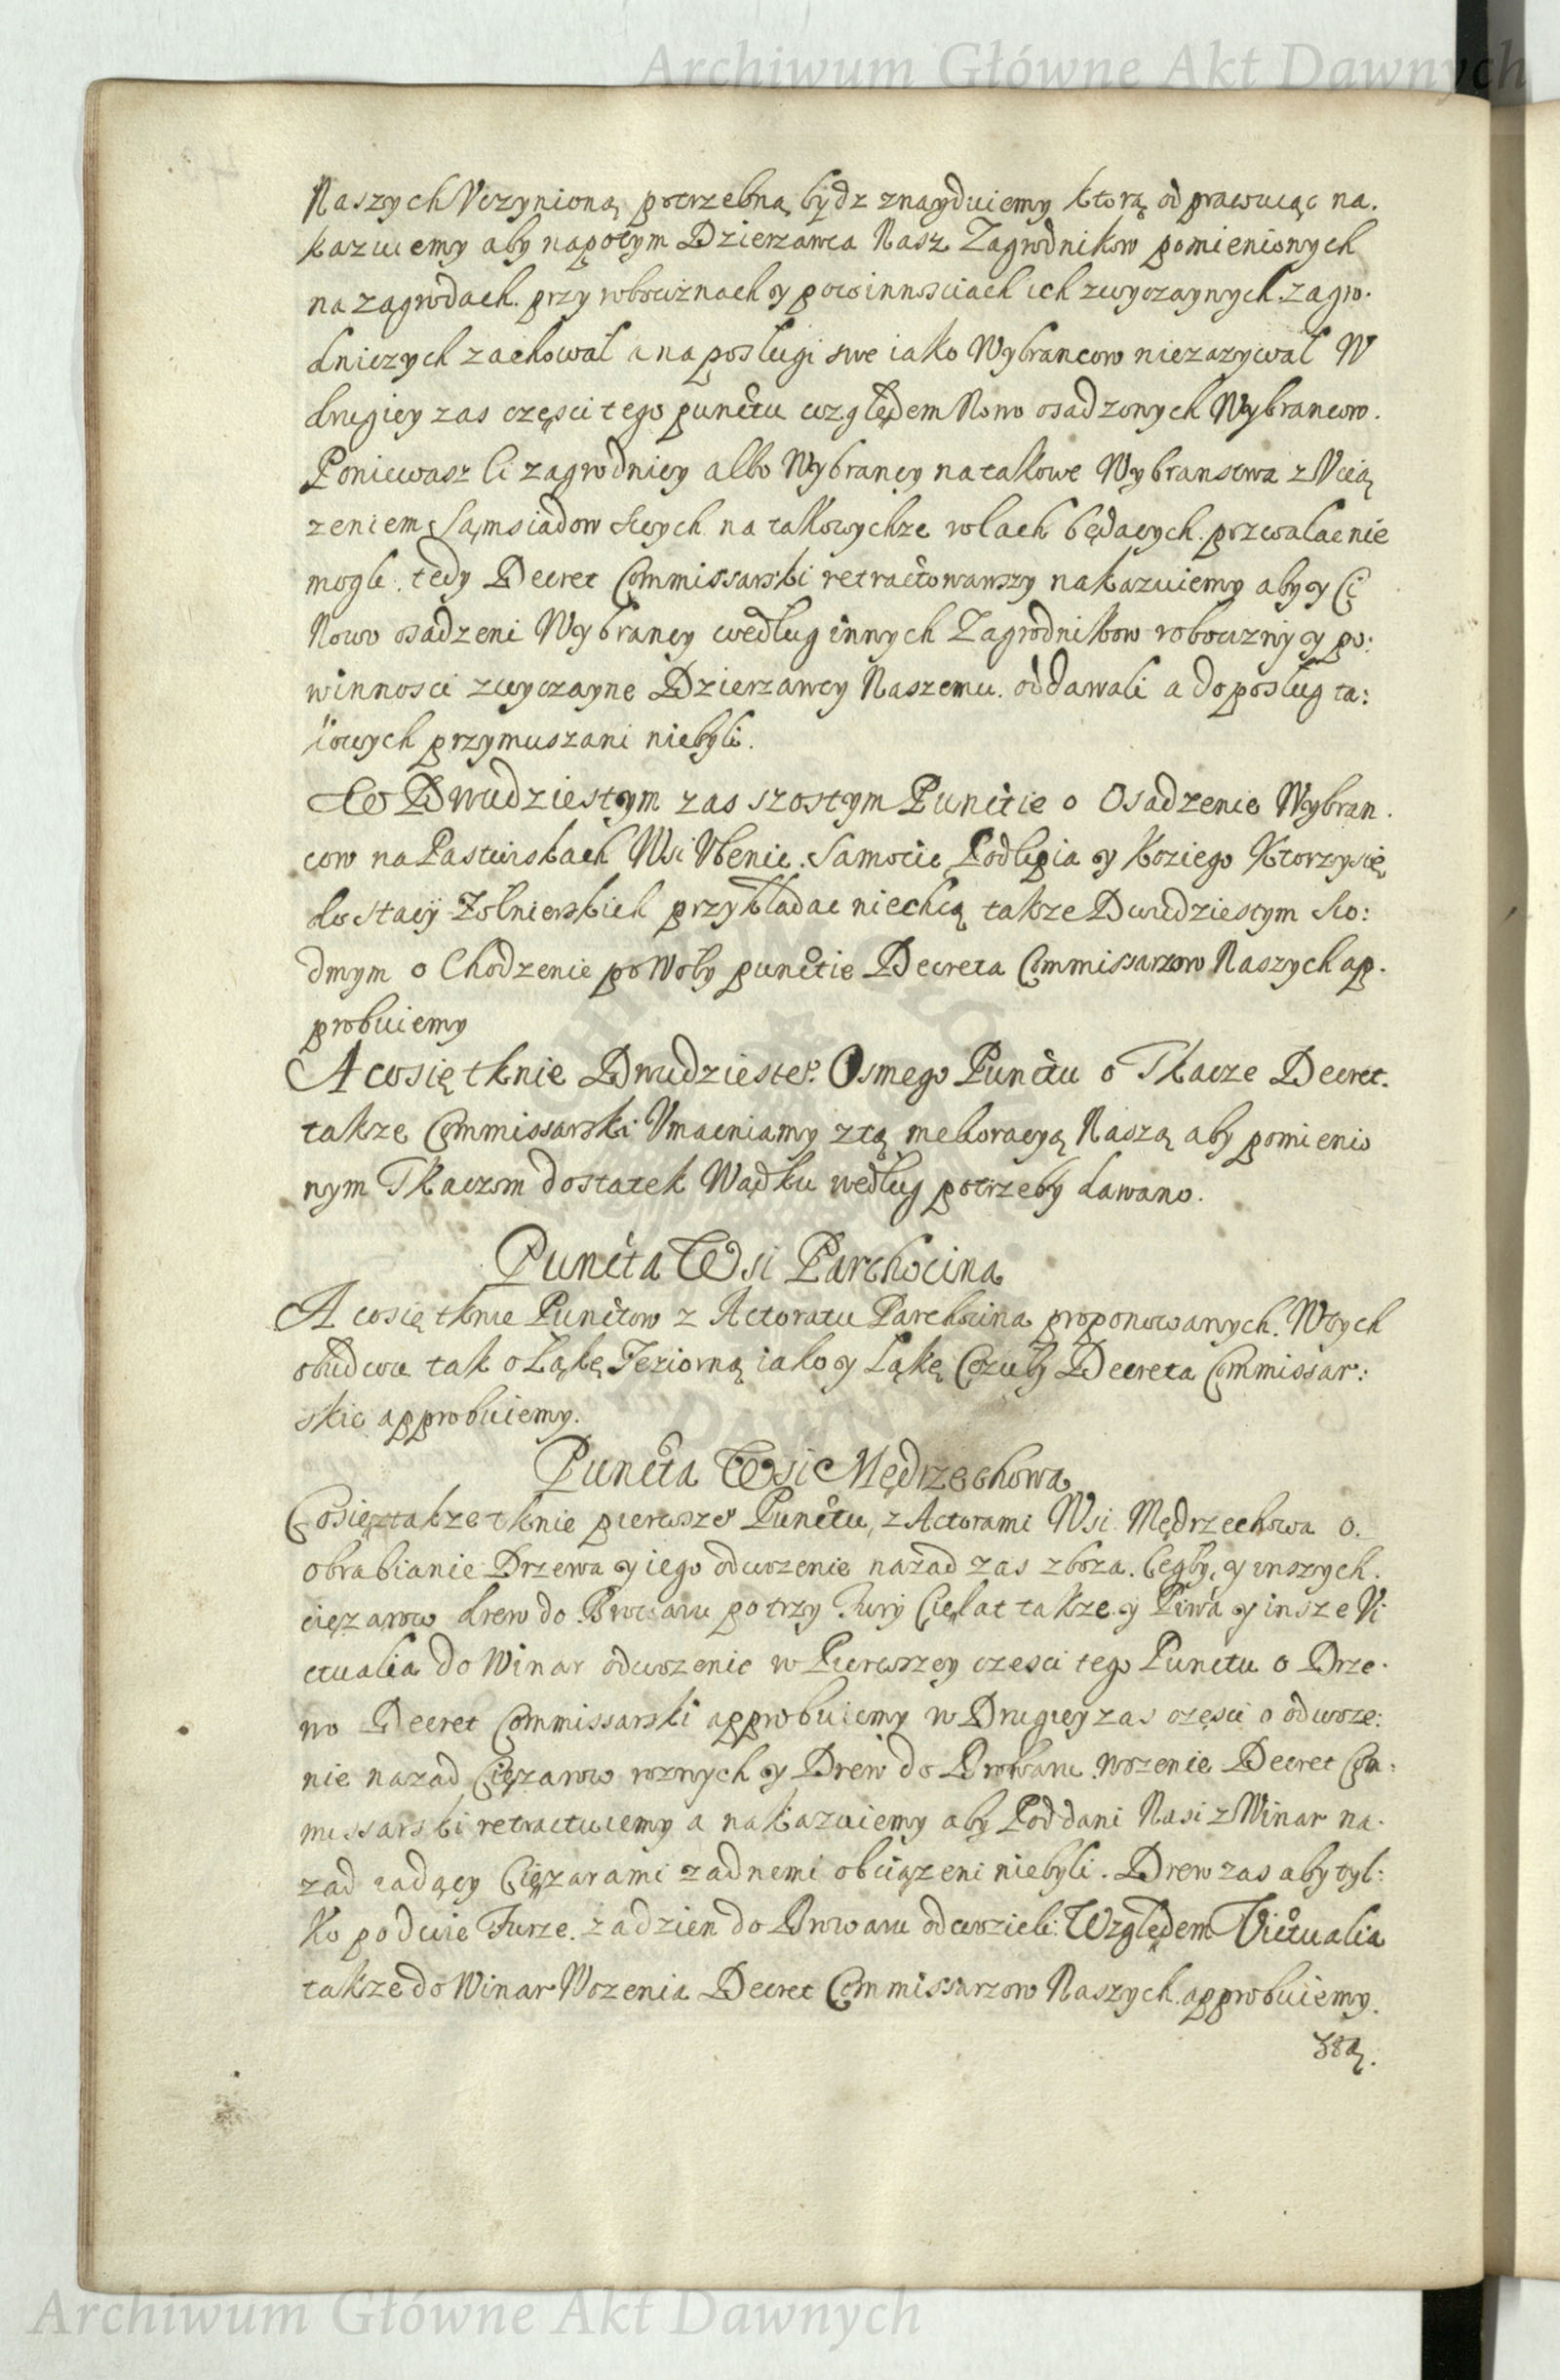 Archiwum Główne Akt Dawnych
Naszych Vczynioną potrzebną bydz znayduiemy ktorą odprawuiąc na.
kazuiemy aby napotym Dzierzawca Nasz Zagrodnikow pomienionych
na zagrodach przy robociznach y powinnosciach ich zwyczaynych zagro.
dniczych zachował a na posługi swe iako Wybrancow niezazywał W
drugiey zas częsci tego punctu względem Nowo osadzonych Wybrancow.
Poniewasz Ci zagrodnicy albo Wybrancy na takowe Wybranstwa z Vcią
zeniem Sąmsiadow swych na takowychze rolach będących
mogli. tedy Decret Commissarski retractowawszy nakazuiemy aby y Ci
Nowo osadzeni Wybrancy według innych Zagrodnikow robocizny y po:
winnosci zwyczayne Dzierzawcy Naszemu oddawali a do posług ta:
kowych przymuszani niebyli.
Co Dwudziestym zas szostym Punctie o Osadzenie Wybran.
cow na Pastwiskach Wsi Podlipia y Koziego Ktorzy się
do stacÿ Zołnierskich przykładac niechcą takze Dwudziestym Sio:
dmym o Chodzenie po Woły punctie Decreta Commissarzow Naszych ap.
probuiemy
A co się tknie Dwudzieste° Osmego Punctu o Tkacze Decret.
takze Commissarski Vmacniamy z tą melioracyą Naszą aby pomienio
nym Tkaczom dostatek Wądku według potrzeby dawano.
Puncta Wsi Parchocina
A co się tknie Punctow z Actoratu Parchocina proponowanych. W tych
obudwu tak o Łąkę Jeziorną iako y Łąkę Decreta Commissar:
skie approbuiemy.
Puncta Wsi Mędrzechowa
Co się takze tknie pierwsze° Punctu, z Actorami Wsi Mędrzechowa o.
obrabianie Drzewa y iego odwozenie nazad zas zboza. Cegły, y inszych.
cięzarow drew do Browaru po trzy Fury Cieląt takze y Piwa y insze Vi
ctualia do Winar odwozenie w Pierwszey czesci tego Punctu o Drze.
wo Decret Commissarski approbuiemy w Drugiey zas częsci o odwoze:
nie nazad Cięzarow roznych y Drew do Browaru Wozenie Decret Com:
missarski retractuiemy a nakazuiemy aby Poddani Nasi z Winar na.
zad iadący Cięzarami zadnemi obciązeni niebyli. Drew zas aby tyl:
ko po dwie Furze. za dzien do Browaru odwozieli. Względem Victualia
takze do Winar Wozenia Decret Commissarzow Naszych approbuiemy.
Archiwum Główne Akt Dawnych